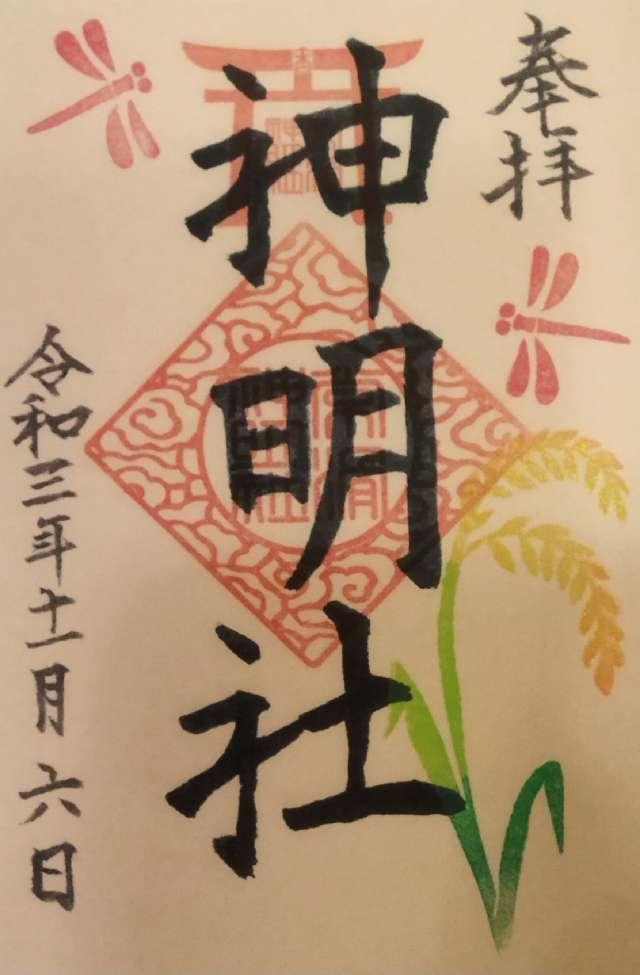 奉拝
神明社
令和三年十一月六日